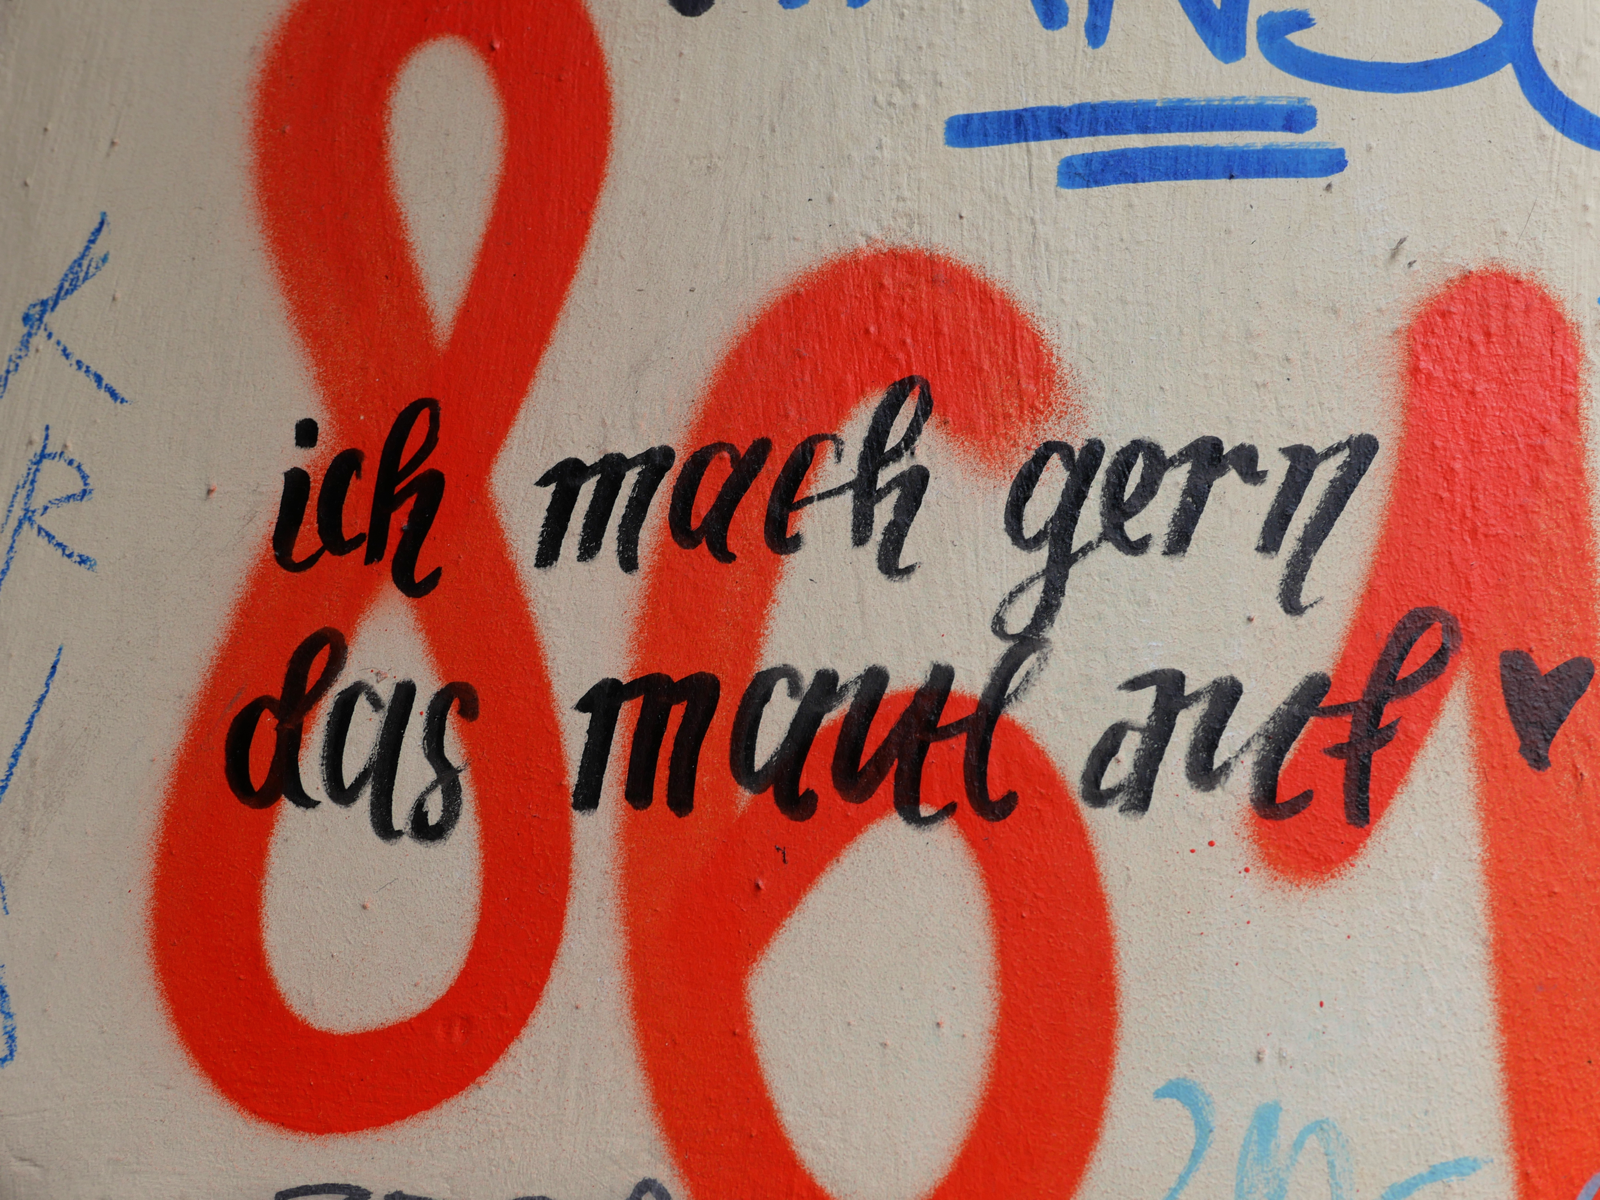 861
ich mach gern
das maul auf ♥